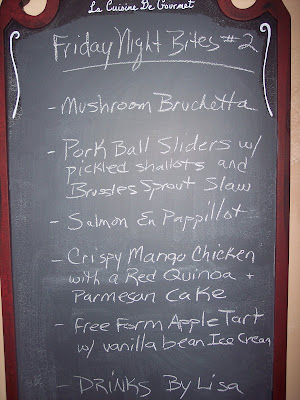 La Cuisine De Gourmet
Friday Night Bites #2
- Mushroom Bruchetta
- Pork Ball Sliders w/
pickled shallots and
Brussles Sprout Slaw
- Salmon En Pappillot
- Crispy Mango Chicken
with a Red Quinoa +
Parmesan Cake
- Free Form Apple Tart
w/ vanilla bean Ice Cream
- DRINKS By Lisa